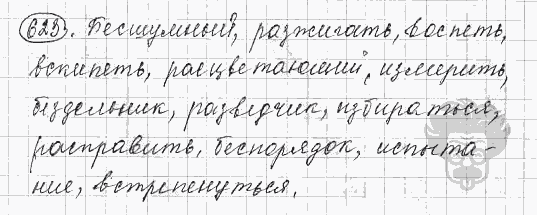 623. Бесшумный, разжигать, воспеть,
вскипеть, расцветающий, измерить,
бездельник, разведчик, избираться,
расправить, беспорядок, испыта-
ние, встрепенуться.